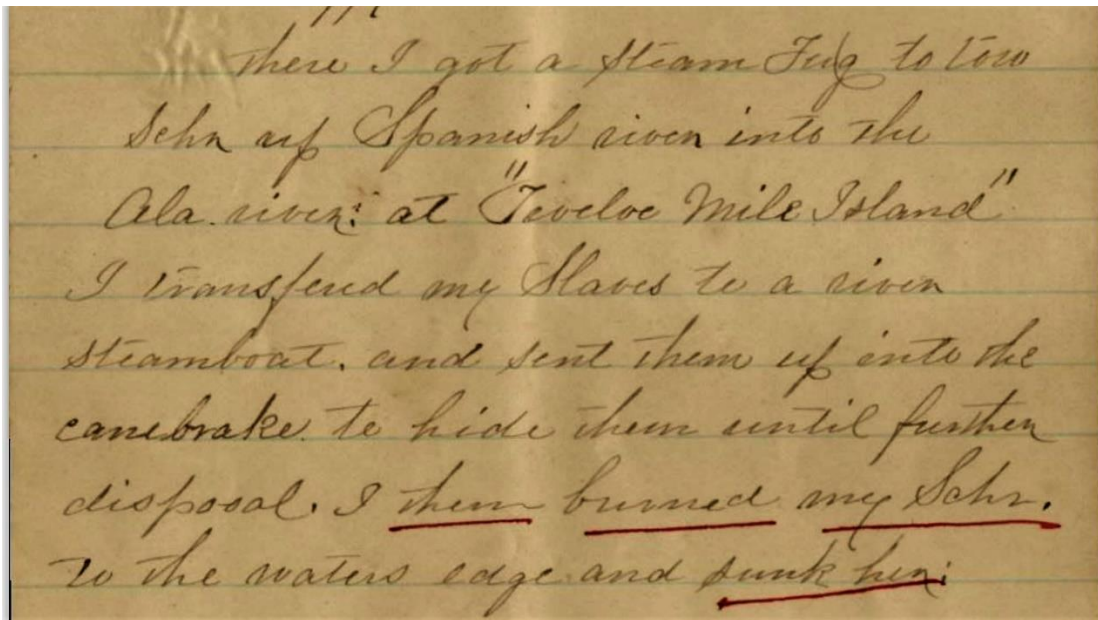 there I got a steam Tug to tow
Schr up Spanish river into the
Ala. river: at "Twelve Mile Island"
I transfered my Slaves to a river
steamboat. and sent them up into the
canebrake. to hide them until further
disposal. I then burned my Schr.
to the waters edge and sunk her: